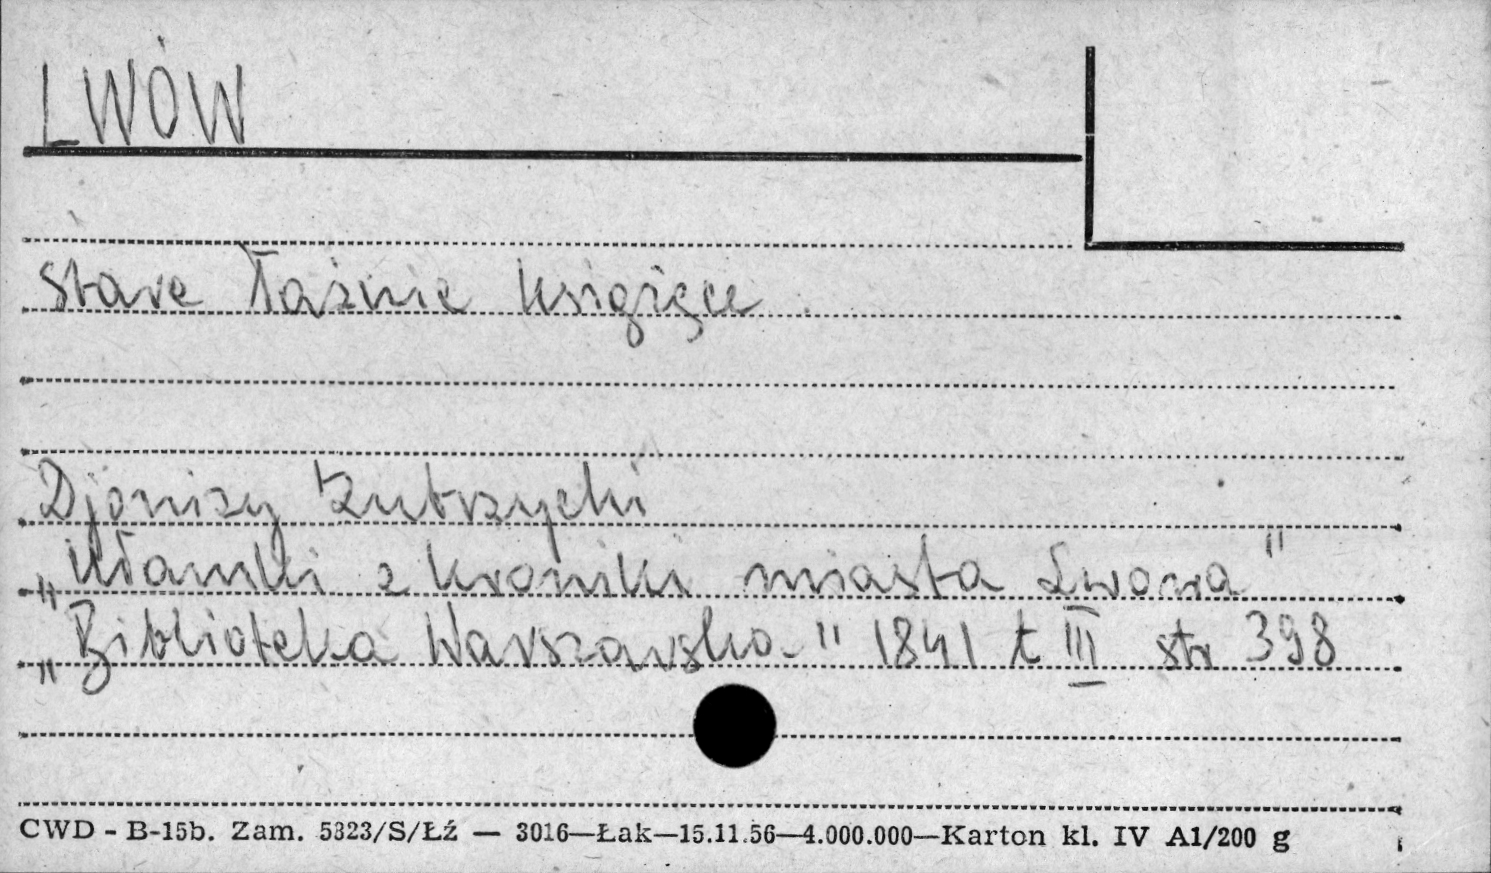 LWÓW
Stare Łaźnie książęce.
Djonizy Zubrzycki
„Ułamki z kroniki miasta Lwowa"
„Biblioteka Warszawska" 1841 t III str 398
CWD - B-15b. Zam. 5323/S/Łź — 3016—Łak—15.11.56—4.000.000—Karton kl. IV A1/200 g